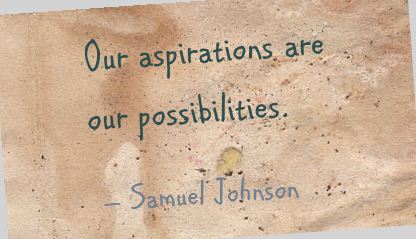 Our aspirations are
our possibilities.
– Samuel Johnson